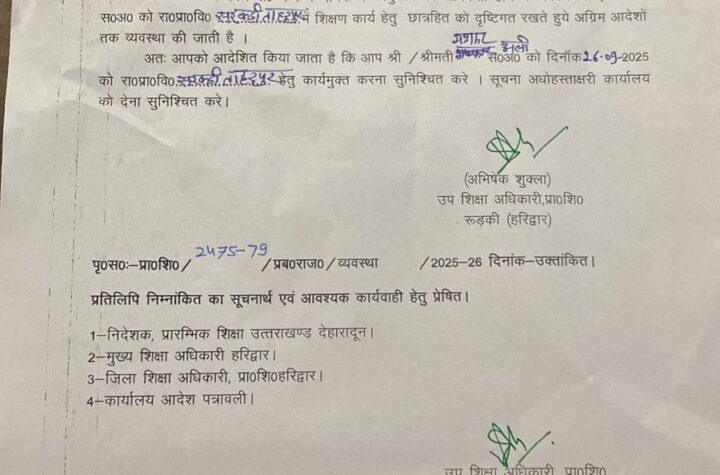 स०अ० को रा०प्रा०वि० सरकडी ताहरपुर में शिक्षण कार्य हेतु छात्रहित को दृष्टिगत रखते हुये अग्रिम आदेशों
तक व्यवस्था की जाती है ।
अतः आपको आदेशित किया जाता है कि आप श्री / श्रीमती अली स०अ० को दिनॉक 26-09-2025
को रा०प्रा०वि० सरकडी ताहरपुर हेतु कार्यमुक्त करना सुनिश्चित करे । सूचना अधोहस्ताक्षरी कार्यालय
को देना सुनिश्चित करे।
(अभिषेक शुक्ला)
उप शिक्षा अधिकारी,प्रा०शि०
रूडकी (हरिद्वार)
पृ०स०:–प्रा०शि०/ 2475-79 /प्रब०राज०/व्यवस्था /2025–26 दिनांक–उक्तांकित।
प्रतिलिपि निम्नांकित का सूचनार्थ एवं आवश्यक कार्यवाही हेतु प्रेषित।
1–निदेशक, प्रारम्भिक शिक्षा उत्तराखण्ड देहारादून।
2–मुख्य शिक्षा अधिकारी हरिद्वार।
3–जिला शिक्षा अधिकारी, प्रा०शि०हरिद्वार।
4–कार्यालय आदेश पत्रावली ।
उप शिक्षा अधिकारी, प्रा०शि०